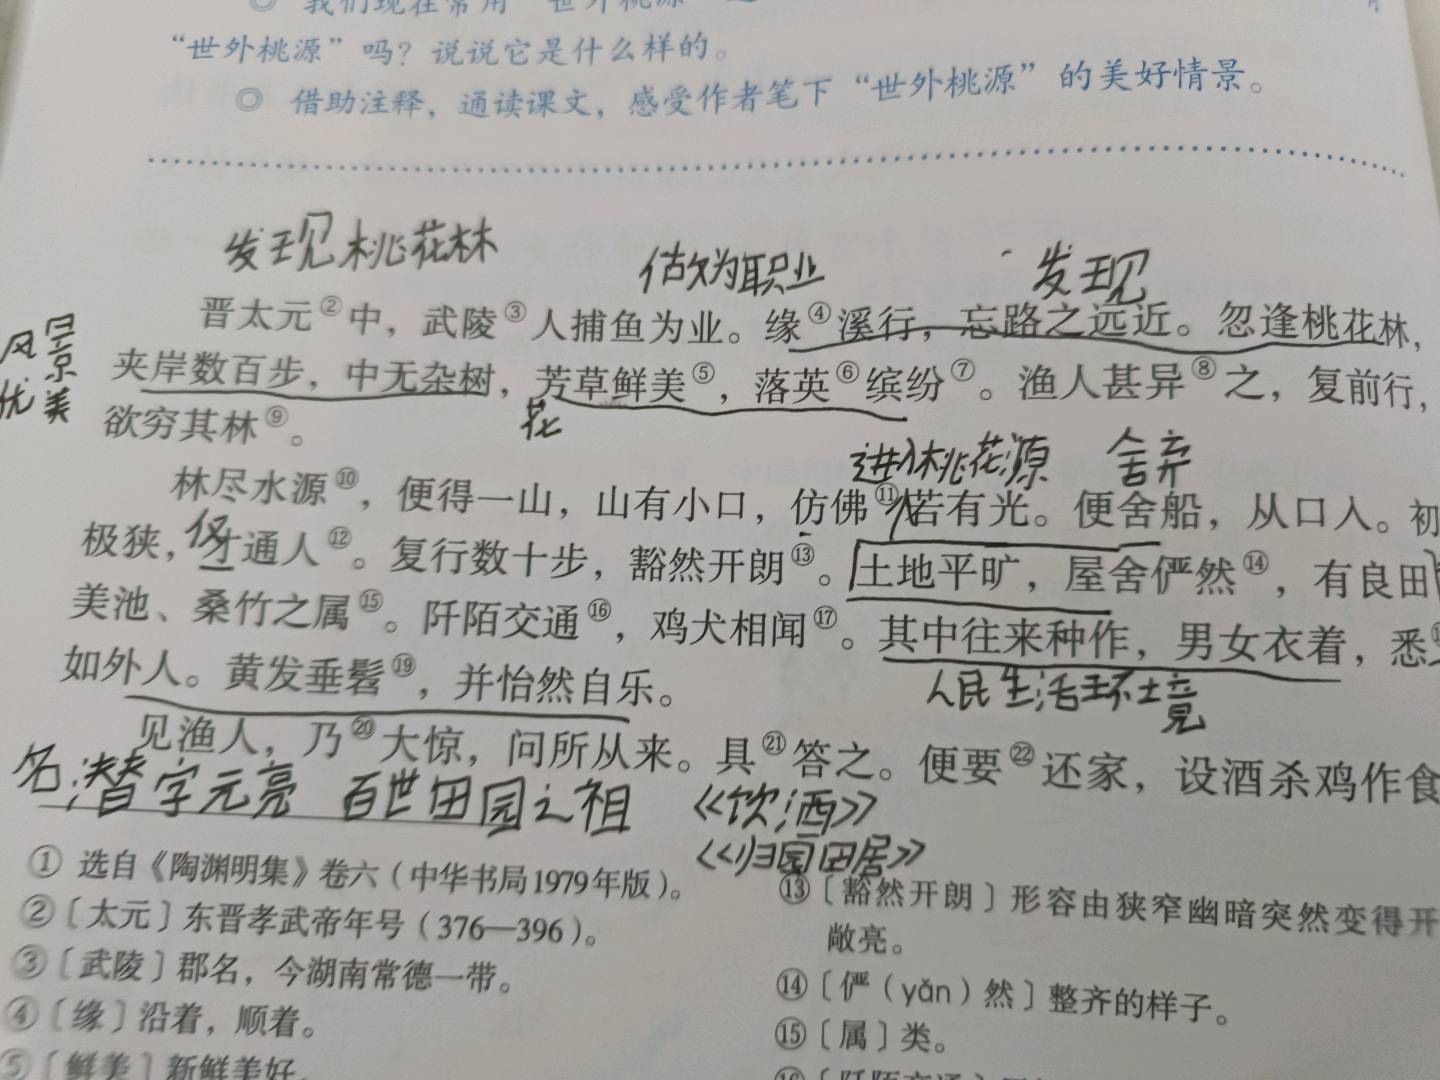 ◎ 我们现在常用“世外桃源”
“世外桃源”吗？说说它是什么样的。
◎ 借助注释，通读课文，感受作者笔下“世外桃源”的美好情景。
发现桃花林
做为职业
发现
晋太元②中，武陵③人捕鱼为业。缘④溪行，忘路之远近。忽逢桃花林，
风景优美
夹岸数百步，中无杂树，芳草鲜美⑤，落英⑥缤纷⑦。渔人甚异⑧之，复前行，
花
欲穷其林⑨。
进入桃花源
舍弃
林尽水源⑩，便得一山，山有小口，仿佛⑪若有光。便舍船，从口入。初
仅
极狭，才通人⑫。复行数十步，豁然开朗⑬。土地平旷，屋舍俨然⑭，有良田
美池、桑竹之属⑮。阡陌交通⑯，鸡犬相闻⑰。其中往来种作，男女衣着，悉
如外人。黄发垂髫⑲，并怡然自乐。
人民生活环境
见渔人，乃⑳大惊，问所从来。具㉑答之。便要㉒还家，设酒杀鸡作食
名:潜字元亮 百世田园之祖 《饮酒》
《归园田居》
① 选自《陶渊明集》卷六（中华书局1979年版）。
②〔太元〕东晋孝武帝年号（376—396）。
③〔武陵〕郡名，今湖南常德一带。
④〔缘〕沿着，顺着。
⑤〔鲜美〕新鲜美好。
⑬〔豁然开朗〕形容由狭窄幽暗突然变得开
敞亮。
⑭〔俨（yǎn）然〕整齐的样子。
⑮〔属〕类。